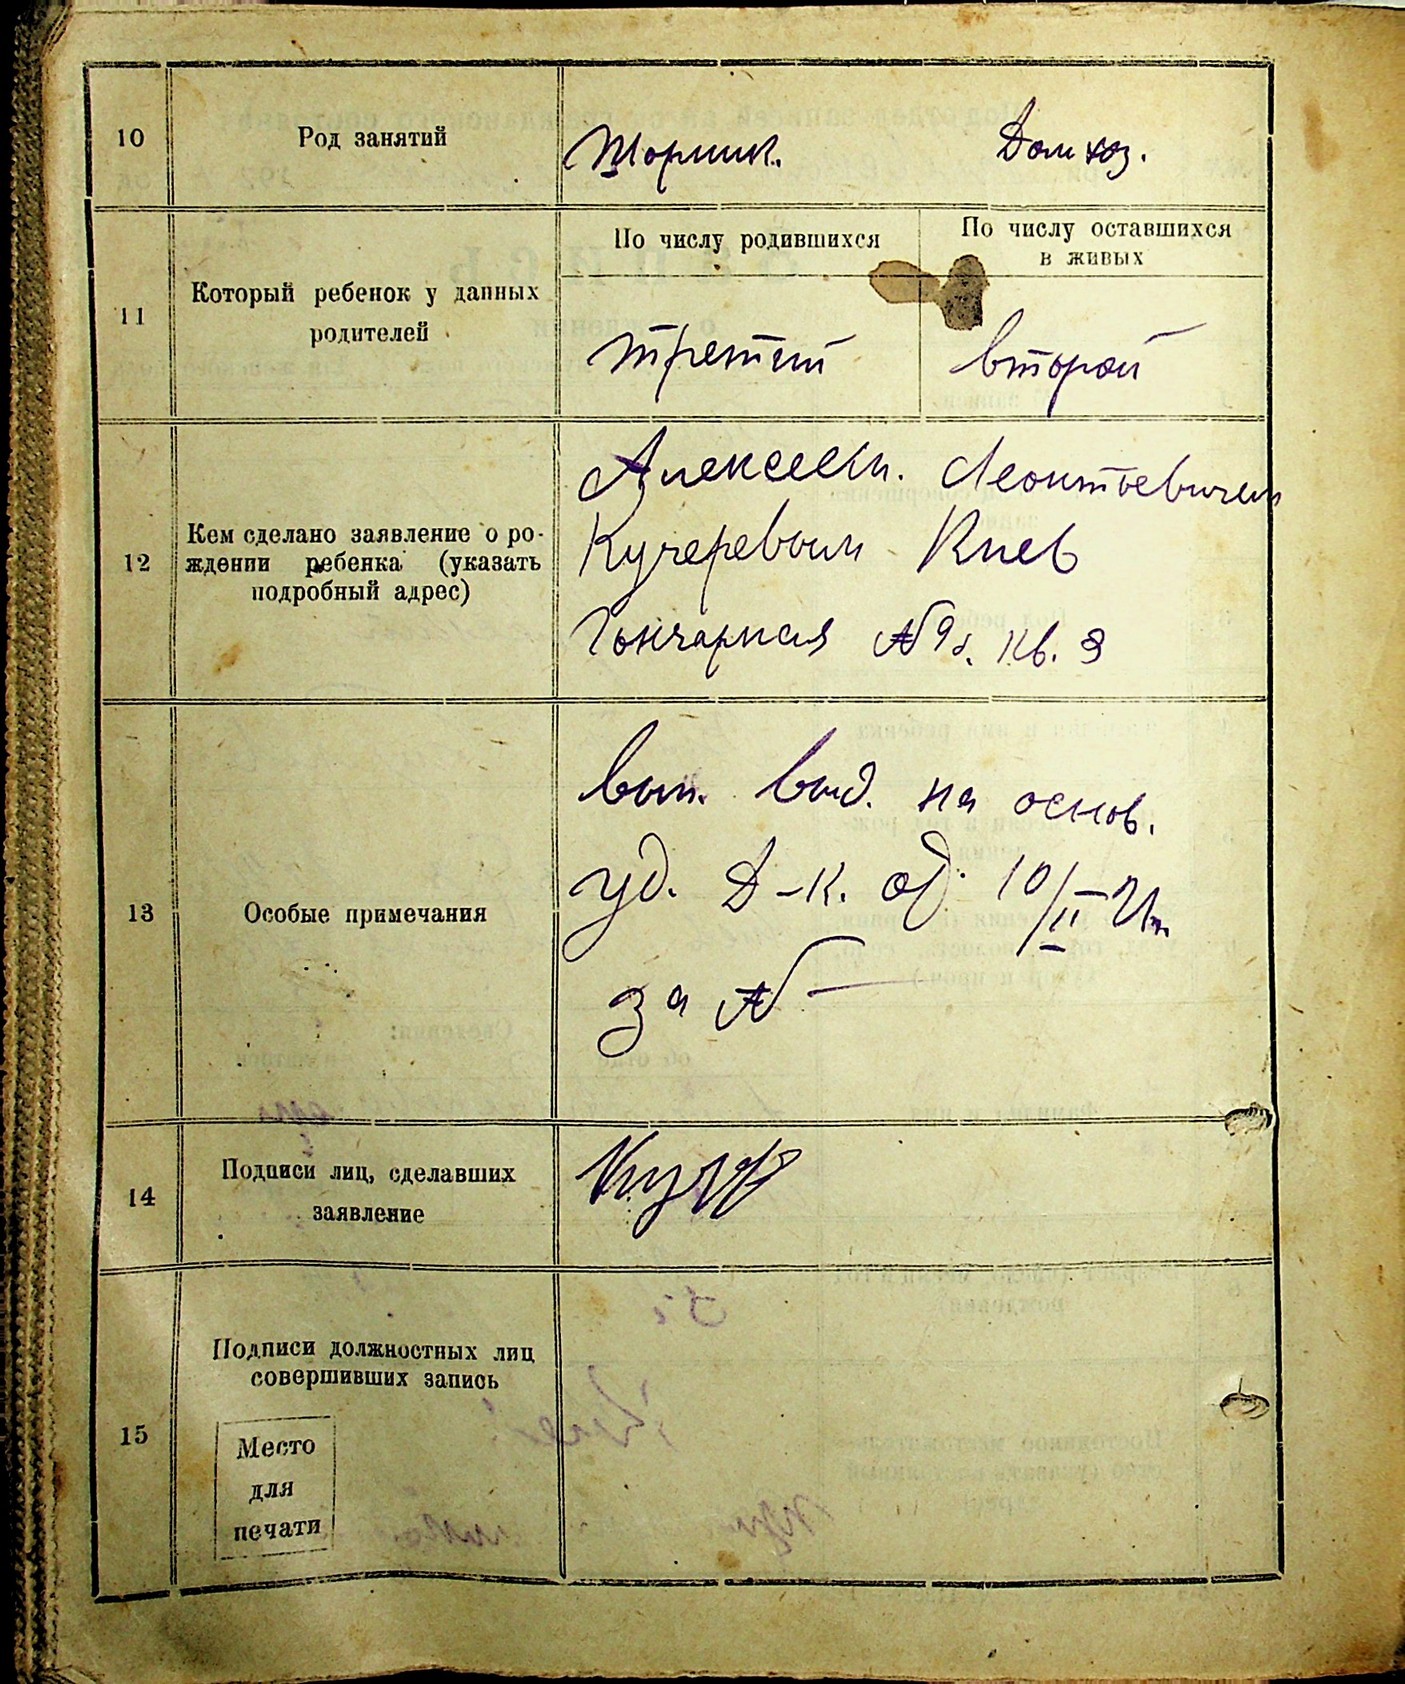 10 Род занятий Шорник. Дом хоз.
11 Который ребенок у данных
родителей
По числу родившихся
По числу оставшихся
в живых
третий второй
12 Кем сделано заявление о ро-
ждении ребенка (указать
подробный адрес)
Алексеем Леонтьевичем
Кучеревым Киев
Гончарная № кв. 3
13 Особые примечания
вып. выд. на основ.
уд. Д-К. от 10/II-21г.
за № —
14 Подписи лиц, сделавших
заявление
15 Подписи должностных лиц
совершивших запись
Место
для
печати